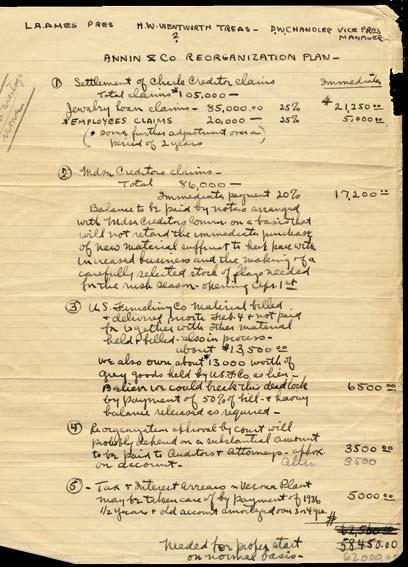 L.A. AMES PRES   H.W. WENTWORTH TREAS -   D.W. CHANDLER VICE PRES
?   MANAGER
ANNIN & CO REORGANIZATION PLAN -
① Settlement of Creditor claims   Immediate
Total claims $105,000 -
Jewelry loan claims - 85,000.00   25%   $21,250 00
* EMPLOYEES CLAIMS   20,000 -   25%   5,000 00
(* some further adjustment over a
period of 2 years
② Mdse Creditors claims -
Total   86,000 -
Immediate payment 20%   17,200 00
Balance to be paid by notes arranged
with Mdse Creditors on a basis that
will not retard the immediate purchase
of new material sufficient to keep pace with
increased business and the making of a
carefully selected stock of flags needed
for the rush season - opening Sept 1st
③ U.S. Finishing Co material billed
& delivered Feb. 4 & not paid
for together with other material
held & billed - also in process -
about $13,500 00
We also own about $13000 worth of
grey goods held by U.S.F. Co as lien -
Believe we could break this deadlock   6500 00
by payment of 50% of bill - & having
balance released as required -
④ Reorganization approval by court will
probably depend on a substantial amount
to be paid to Auditors & Attorneys - approx.   3500 00
on account -   3500
⑤ - Tax & Interest Arrears on Verona Plant
may be taken care of by payment of 1936   5000 00
1/2 years + old account amortized over 3 or 4 yrs.
$
62,500 00
Needed for proper start   58450.00
on normal basis -   62,000.00